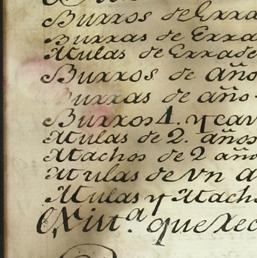 Burros de Erra
Burras de Erra
Mulas de Errade
Burros de año
Burras de año
Burros 4. y cav
Mulas de 2. años
Machos de 2 año
Mulas de Vn a
Mulas y Mach
Exist.ª que